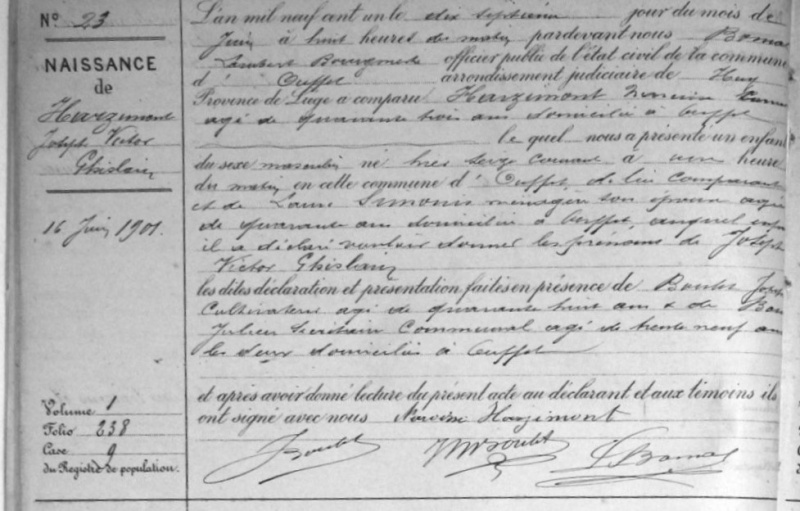 N° 23
NAISSANCE
de
Harzimont
Joseph Victor
Ghislain
16 Juin 1901.
Volume 1
Folio 238
Case 9
du Registre de population.
L'an mil neuf cent un le dix septième jour du mois de
Juin à huit heures du matin pardevant nous Bomal
Lambert Bourgmestre officier public de l'état civil de la commune
d' Ouffet arrondissement judiciaire de Huy
Province de Liège a comparu Harzimont
agé de quarante trois ans domicilié à Ouffet
le quel nous a présenté un enfant
du sexe masculin né hier seize courant à une heure
du matin en cette commune d' Ouffet, de lui comparant
et de Laure Simonis ménagère son épouse agée
de quarante ans domiciliée à Ouffet, auquel enfant
il a déclaré vouloir donner les prénoms de Joseph
Victor Ghislain
les dites déclaration et présentation faites en présence de Boulet Joseph
Cultivateur agé de quarante huit ans & de
Julien Secrétaire Communal agé de trente neuf ans
les deux domiciliés à Ouffet
et après avoir donné lecture du présent acte au déclarant et aux témoins ils
ont signé avec nous Harzimont
J Boulet
L Bomal